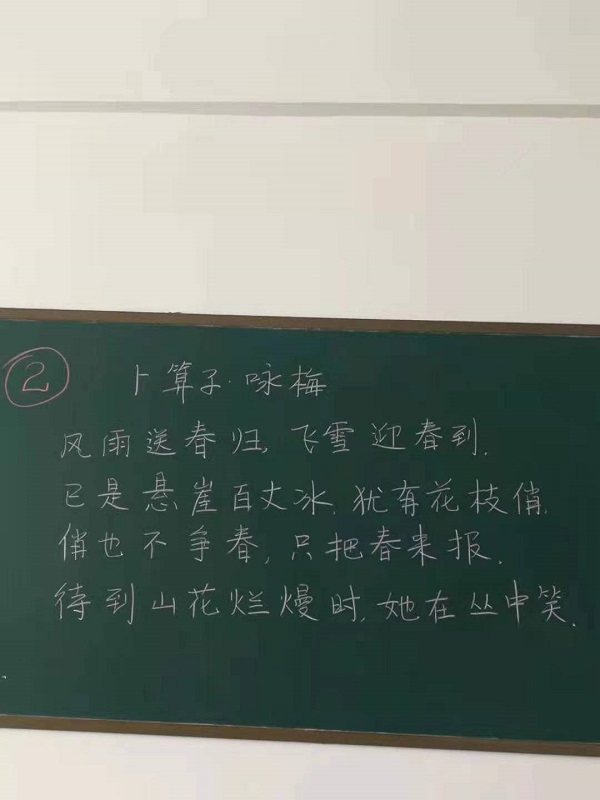 ②
卜算子·咏梅
风雨送春归,飞雪迎春到.
已是悬崖百丈冰,犹有花枝俏,
俏也不争春,只把春来报.
待到山花烂熳时,她在丛中笑.